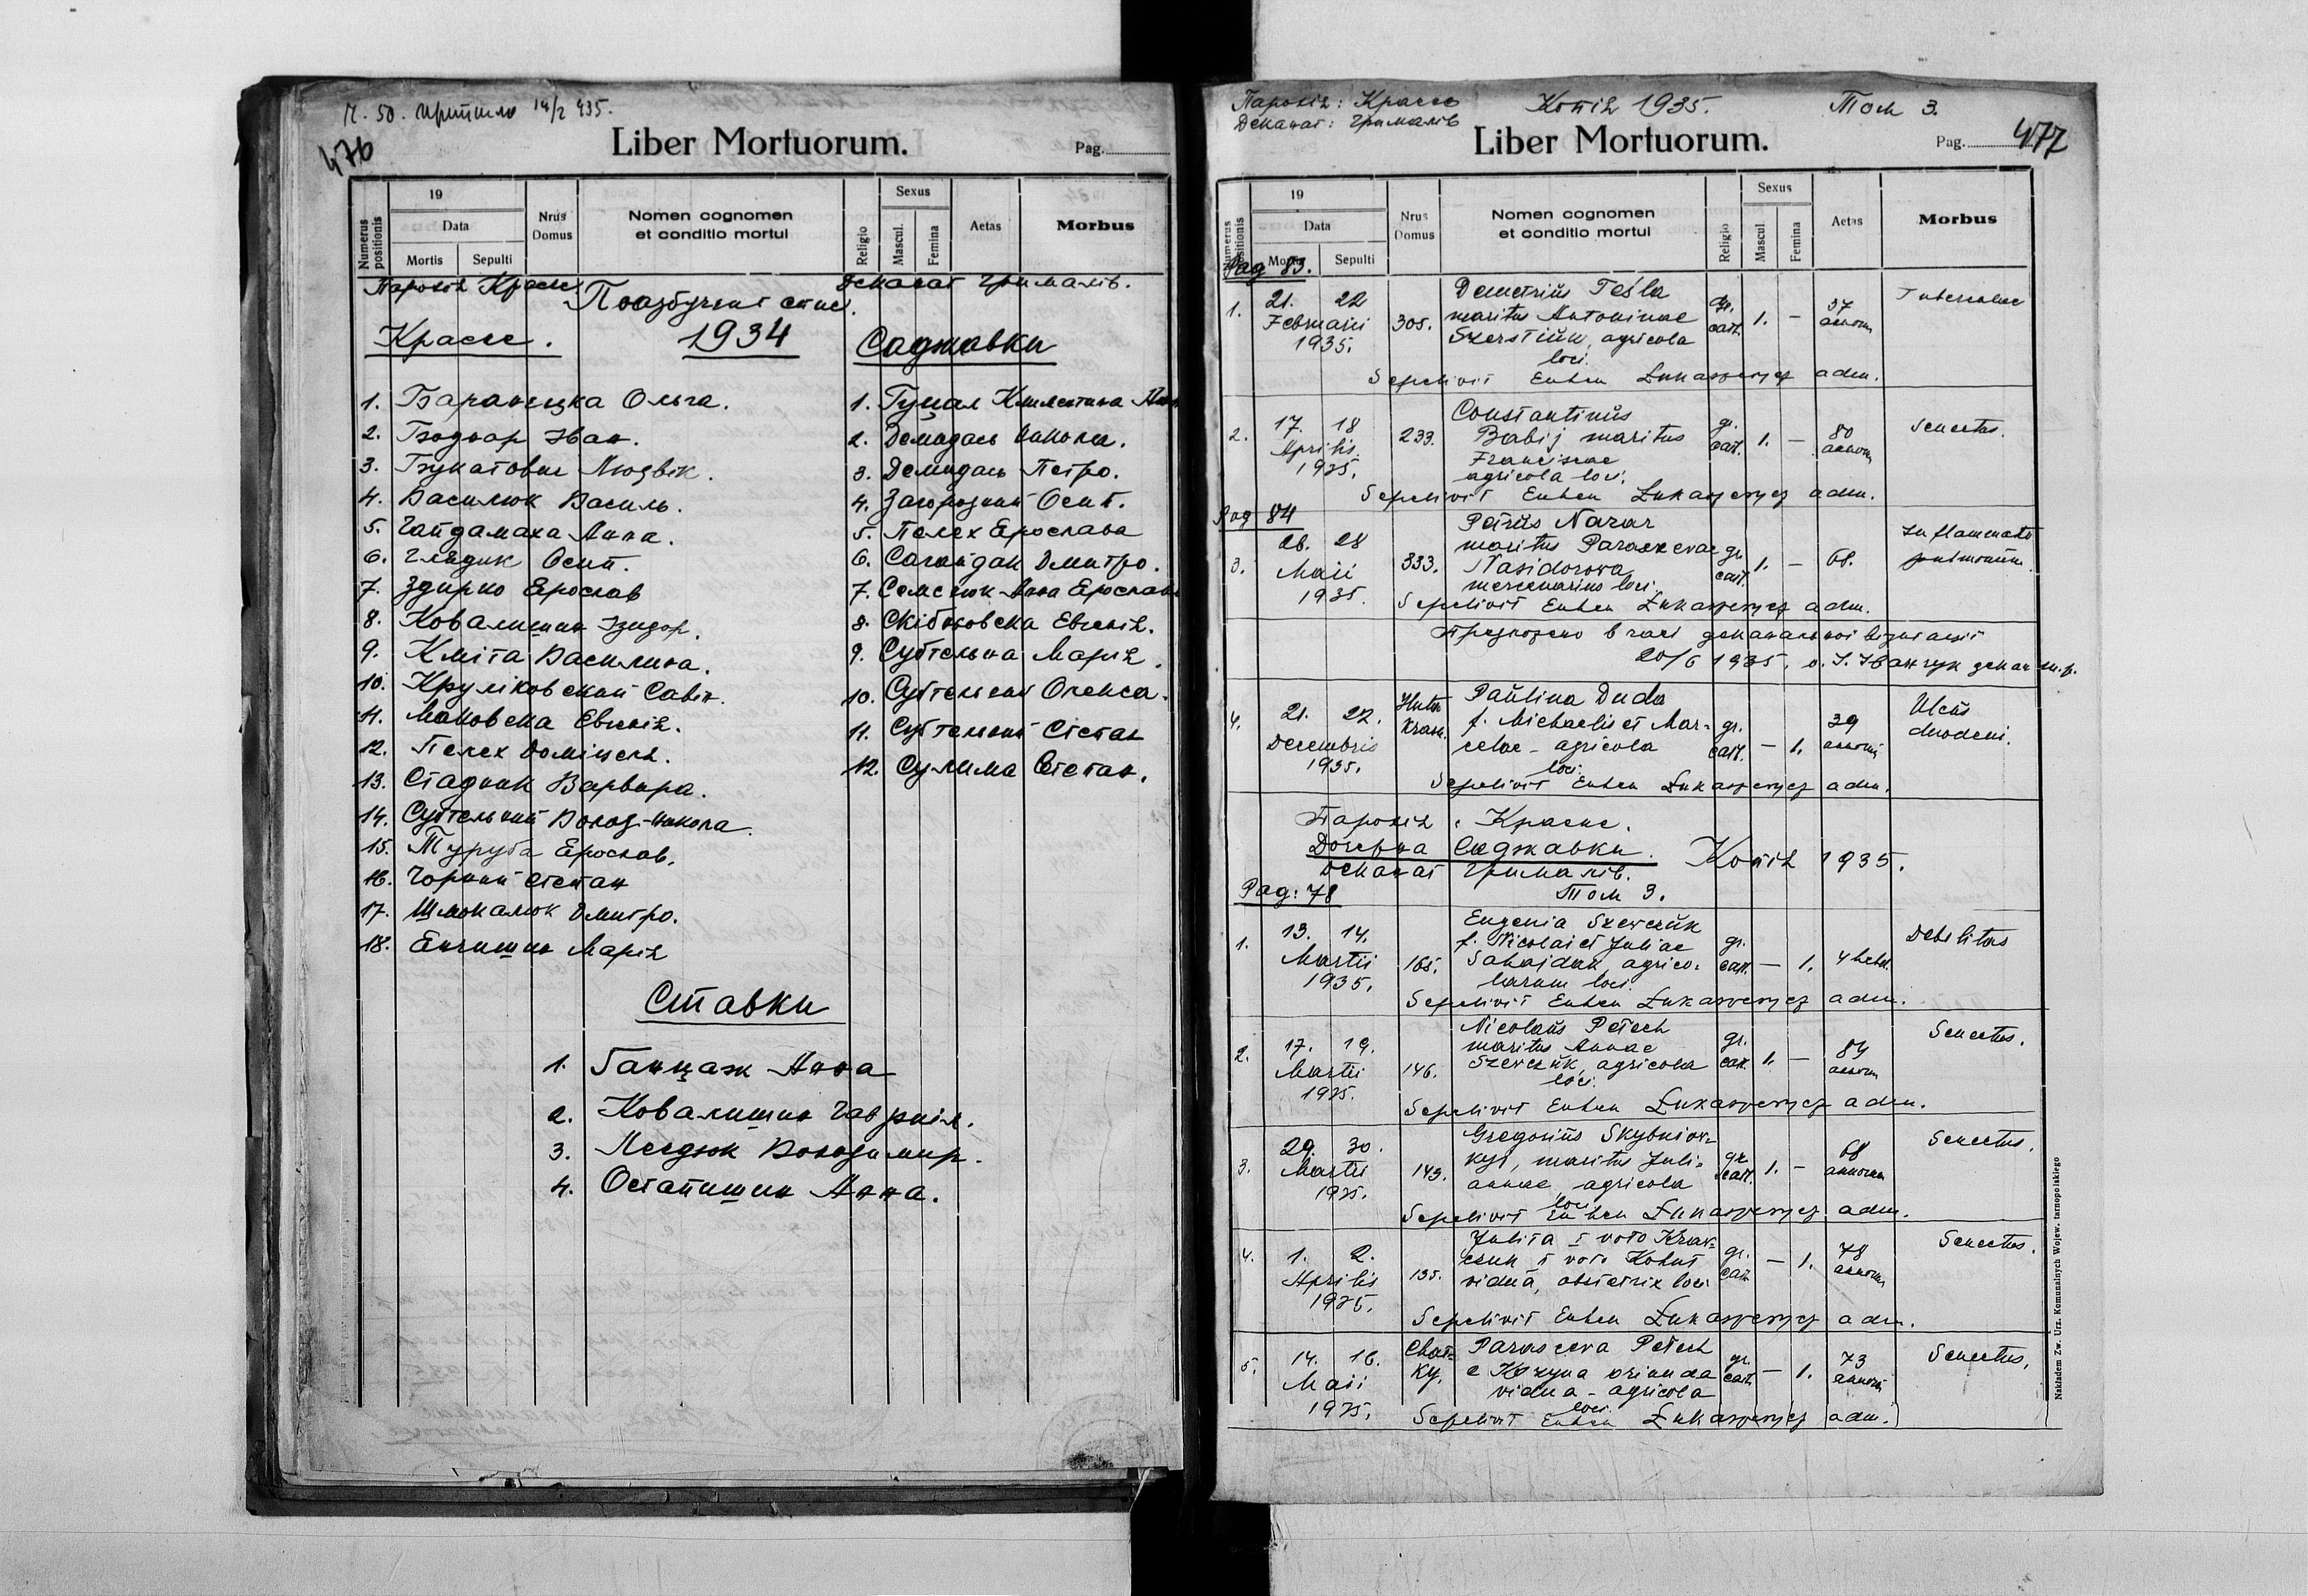 476
Ч. 50. прийшло 14/2 935.
Liber Mortuorum.
Pag.
Numerus positionis
19
Data
Mortis
Sepulti
Nrus Domus
Nomen cognomen
et conditio mortui
Religio
Sexus
Mascul.
Femina
Aetas
Morbus
Парохія Красне
Поазбучний спис.
Деканат Грималів.
Красне.
1934
1. Баранецка Ольга.
2. Боднар Іван.
3. Букатович Людвік.
4. Василюк Василь.
5. Гайдамаха Анна.
6. Глядик Осип.
7. Здирко Ярослав
8. Ковалишин Ізидор.
9. Кміта Василина.
10. Круліковский Савин.
11. Маковска Евгенія.
12. Пелех Домінеля.
13. Стадник Варвара.
14. Субтельний Волод-Микола.
15. Труруба Ярослав.
16. Чорний Степан
17. Шмокалюк Дмитро.
18. Янчишин Марія
Саджавки
1. Гуцал Климентина
2. Демидась Микола.
3. Демидась Петро.
4. Загородний Осип.
5. Пелех Ярослава
6. Сагайдак Дмитро.
7. Семенюк Анна Ярослава
8. Скібновска Евгенія.
9. Субтельна Марія.
10. Субтельний Олекса.
11. Субтельний Степан
12. Сулима Степан.
Ставки
1. Ганцаж Анна
2. Ковалишин Гавриїл.
3. Легдюк Володимир.
4. Остапишин Анна.
Парохія: Красне
Деканат: Грималів
Копія 1935.
Том 3.
Liber Mortuorum.
Pag. 477
Numerus positionis
19
Data
Mortis
Sepulti
Nrus Domus
Nomen cognomen
et conditio mortui
Religio
Sexus
Mascul.
Femina
Aetas
Morbus
Pag 83.
1. 21. 22 Februarii 1935. 305. Demetrius Tesla
maritus Antoninae
Szerstiuk, agricola
loci. gr. cath. 1. — 37 annorum Tuberculoe
Sepelivit Euhen Łukasewycz adm.
2. 17. 18 Aprilis 1935. 233. Constantinus
Babij maritus
Franciscae
agricola loci. gr. cath. 1. — 80 annorum Senectus.
Sepelivit Euhen Łukasewycz adm.
Pag 84
3. 26. 28 Maii 1935. 333. Petrus Nazar
maritus Paraskevae
Nasidorova
mercenarius loci. gr. cath. 1. — 68. Inflammatio
pulmonum.
Sepelivit Euhen Łukasewycz adm.
Предложено в часі деканальної візитації
20/6 1935. о. І. Іванчук декан m.p.
4. 21. 22. Decembris 1935. Huta Krasn. Paulina Duda
f. Michaelis et Mar-
celae - agricola
loci. gr. cath. — 1. 39 annorum Ulcus
duodeni.
Sepelivit Euhen Łukasewycz adm.
Парохія: Красне.
Дочерна Саджавки.
Копія 1935.
Деканат Грималів.
Pag: 78
Том 3.
1. 13. 14. Martii 1935. 165. Eugenia Szewczuk
f. Nicolai et Juliae
Sahajdak agrico-
larum loci. gr. cath. — 1. 4 hebd. Debilitas
Sepelivit Euhen Łukasewycz adm.
2. 17. 19. Martii 1935. 146. Nicolaus Pełech
maritus Annae
Szewczuk, agricola
loci. gr. cath. 1. — 84 annorum Senectus.
Sepelivit Euhen Łukasewycz adm.
3. 29. 30. Martii 1935. 143. Gregorius Skybniow-
kyj, maritus Juli-
annae agricola
loci gr. cath. 1. — 68 annorum Senectus.
Sepelivit Euhen Łukasewycz adm.
4. 1. 2. Aprilis 1935. 135. Julita I voto Kraw-
czuk I voto Kohut
vidua, obstetrix loci gr. cath. — 1. 78 annorum Senectus.
Sepelivit Euhen Łukasewycz adm.
5. 14. 16. Maii 1935. Chat-
ky. Parasceva Pełech
e Kozyna orianda
vidua - agricola
loci. gr. cath. — 1. 73 annorum Senectus.
Sepelivit Euhen Łukasewycz adm.
Nakładem Zw. Urz. Komunalnych Wojew. tarnopolskiego